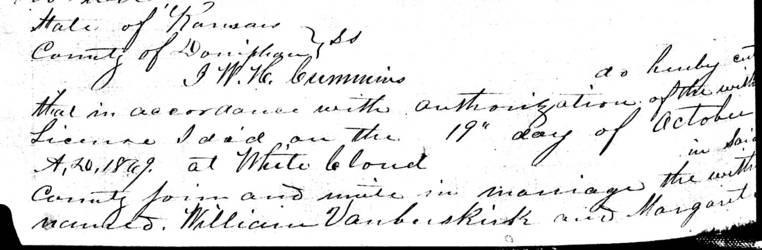 State of Kansas
County of Doniphan } SS
I W. H. Cummins do herby cer
that in accordance with authorization of the with
License I did, on the 19" day of October
A,D, 1869. at White Cloud in Said
County join and unite in marriage the with
named. William Vanbuskirk and Margaret